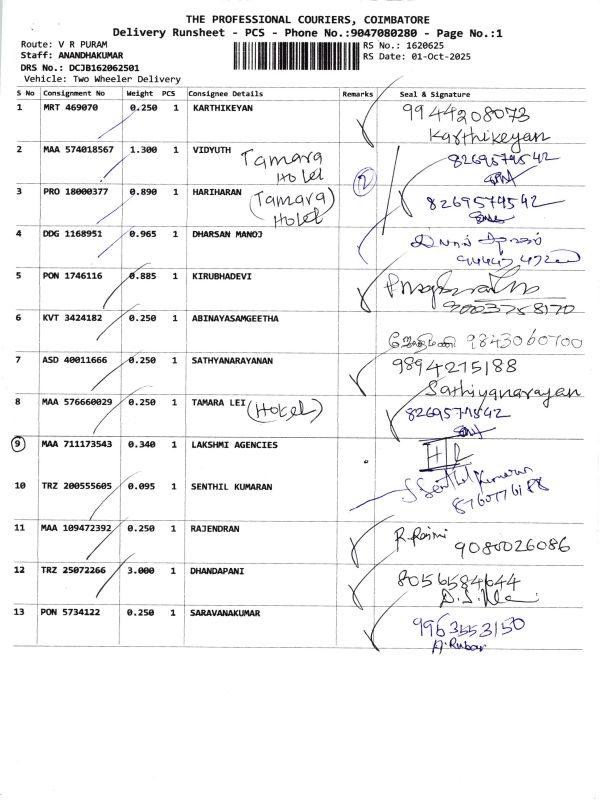 THE PROFESSIONAL COURIERS, COIMBATORE
Delivery Runsheet - PCS - Phone No.:9047080280 - Page No.:1
Route: V R PURAM
RS No.: 1620625
Staff: ANANDHAKUMAR
RS Date: 01-Oct-2025
DRS No.: DCJB162062501
Vehicle: Two Wheeler Delivery
S No Consignment No Weight PCS Consignee Details Remarks Seal & Signature
1 MRT 469070 0.250 1 KARTHIKEYAN 9944208073
Karthikeyan
2 MAA 574018567 1.300 1 VIDYUTH Tamara Hotel 8269574542
3 PRO 18000377 0.890 1 HARIHARAN (Tamara) Hotel 2 8269574542
4 DDG 1168951 0.965 1 DHARSAN MANOJ
5 PON 1746116 0.885 1 KIRUBHADEVI
9003758170
6 KVT 3424182 0.250 1 ABINAYASAMGEETHA 9843060700
7 ASD 40011666 0.250 1 SATHYANARAYANAN 9894215188
Sathiyanarayan
8 MAA 576660029 0.250 1 TAMARA LEI (Hotel) 8269574542
9 MAA 711173543 0.340 1 LAKSHMI AGENCIES
10 TRZ 200555605 0.095 1 SENTHIL KUMARAN Senthil Kumaran
8760776188
11 MAA 109472392 0.250 1 RAJENDRAN R. Rajni 9080026086
12 TRZ 25072266 3.000 1 DHANDAPANI 8056584644
13 PON 5734122 0.250 1 SARAVANAKUMAR 9963553150